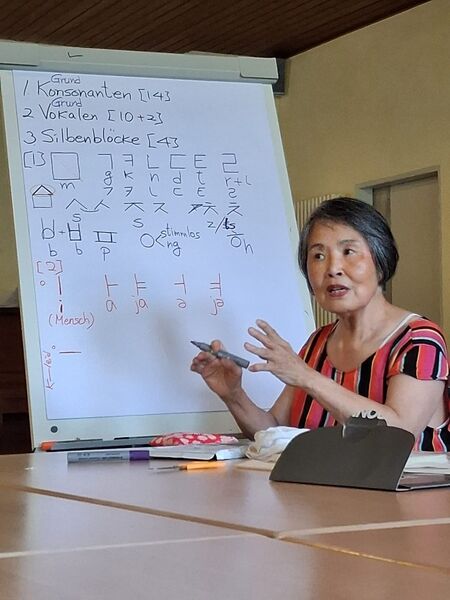 Grund
1 Konsonanten [14]
Grund
2 Vokalen [10+2]
3 Silbenblöcke [4]
[1] ㅁ ㄱ ㅋ ㄴ ㄷ ㅌ ㄹ
m g k n d t r+l
ㄱ ㅋ ㄴ ㄷ ㅌ ㄹ
ㅅ ㅈ ㅅ ㅈ ㅊ
s s z/ts
ㅂ ㅂ ㅍ ㅇ stimmlos ng ㅎ
b b p h
[2]
ㅣ ㅏ ㅑ ㅓ ㅕ
i a ja ə jə
(Mensch)
ㅡ